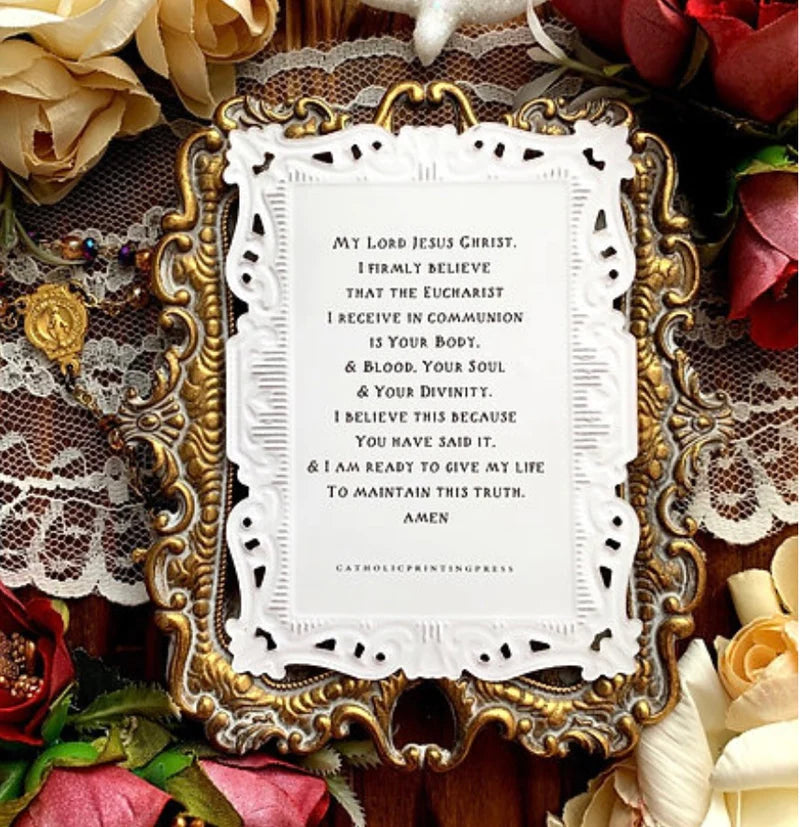 My Lord Jesus Christ,
I firmly believe
that the Eucharist
I receive in communion
is Your Body,
& Blood, Your Soul
& Your Divinity.
I believe this because
You have said it,
& I am ready to give my life
To maintain this truth.
Amen
CATHOLICPRINTINGPRESS